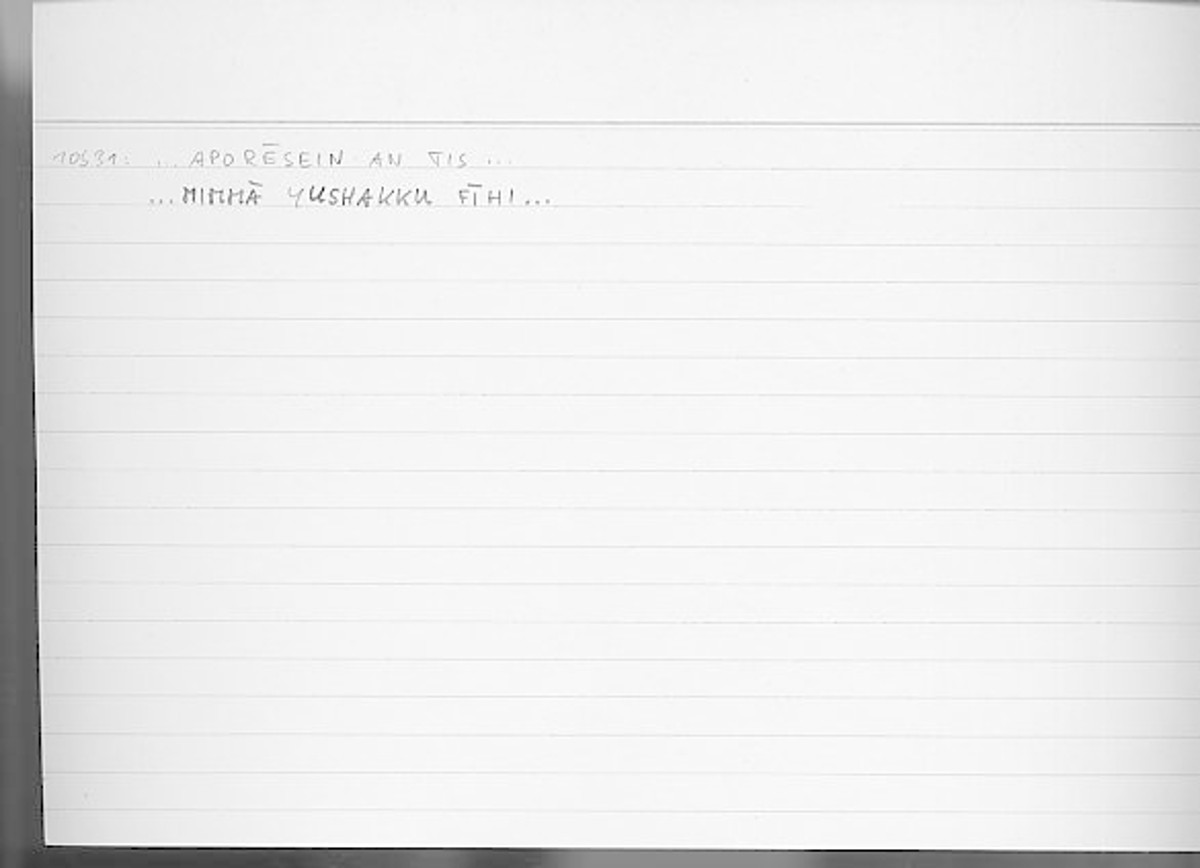 10531: ... APORĒSEIN AN TIS ...
... MIMMĀ YUSHAKKU FĪHI ...